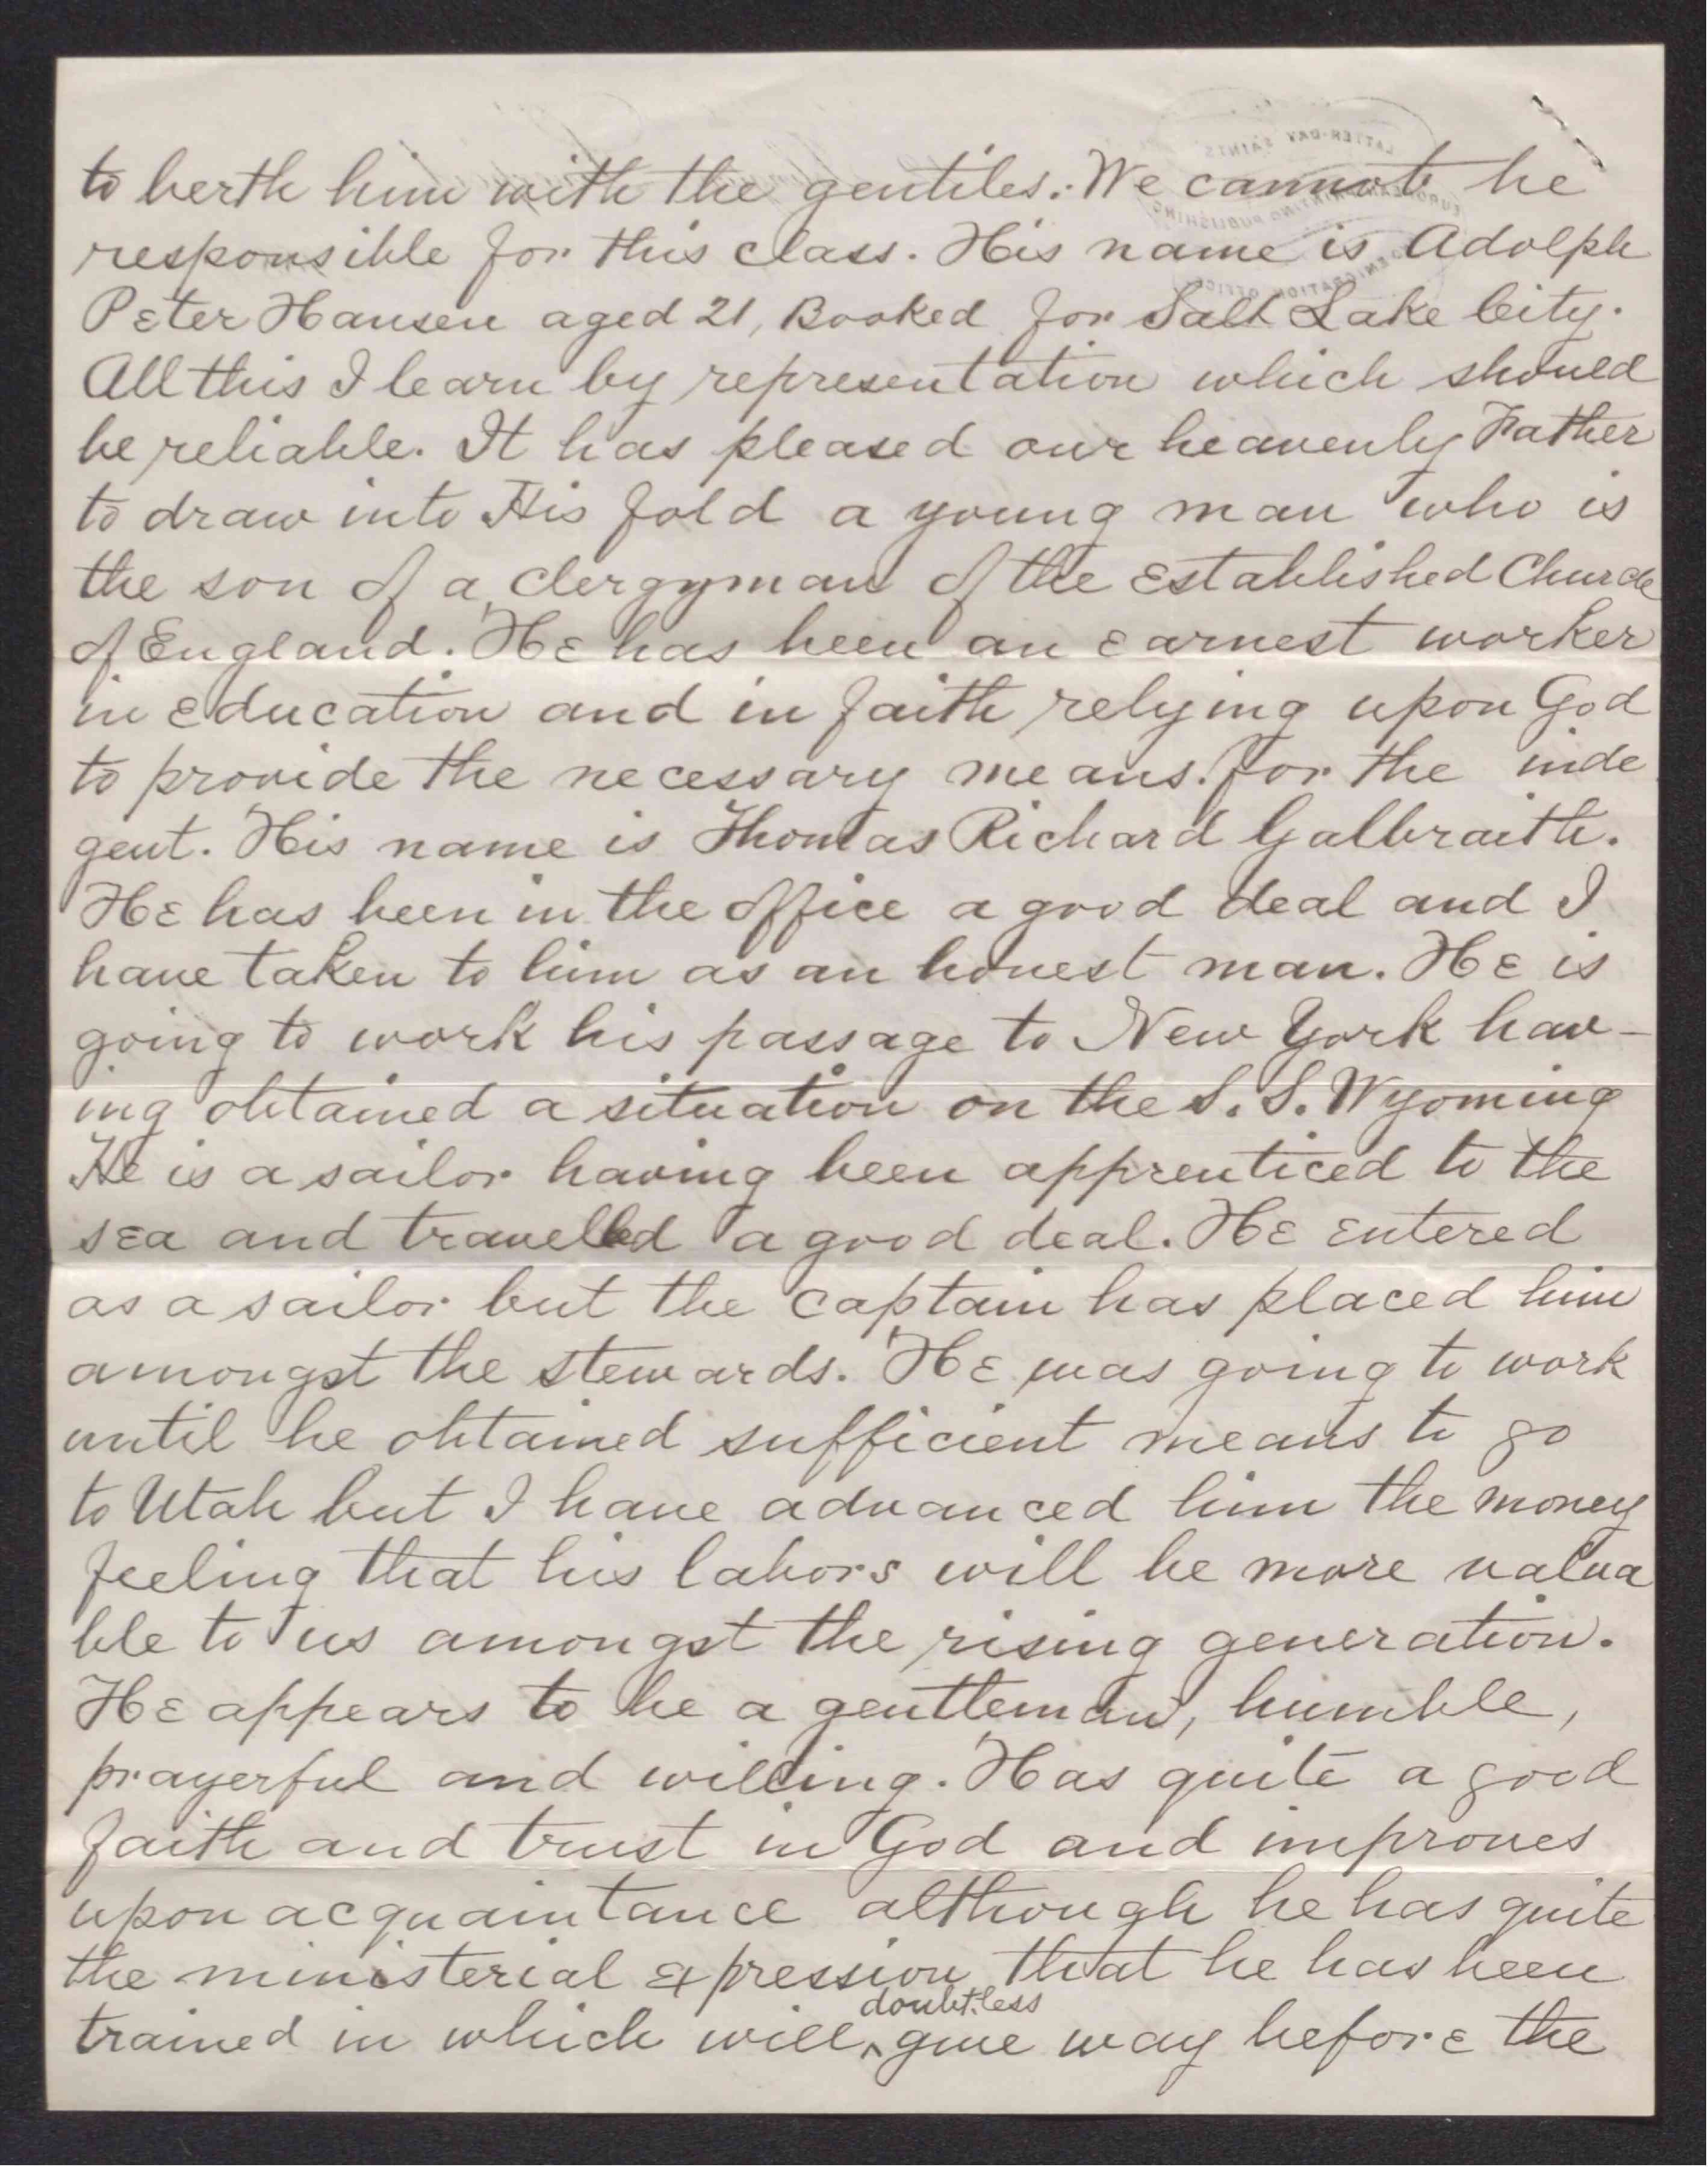 to berth him with the gentiles. We cannot be
responsible for this class. His name is Adolph
Peter Hansen aged 21, Booked for Salt Lake City.
All this I learn by representation which should
be reliable. It has pleased our heavenly Father
to draw into His fold a young man who is
the son of a clergyman of the Established Church
of England. He has been an earnest worker
in education and in faith relying upon God
to provide the necessary means for the inde
gent. His name is Thomas Richard Galbraith.
He has been in the office a good deal and I
have taken to him as an honest man. He is
going to work his passage to New York hav-
ing obtained a situation on the S. S. Wyoming
He is a sailor having been apprenticed to the
sea and travelled a good deal. He entered
as a sailor but the captain has placed him
amongst the stewards. He was going to work
until he obtained sufficient means to go
to Utah but I have advanced him the money
feeling that his labors will be more valua
ble to us amongst the rising generation.
He appears to be a gentleman, humble,
prayerful and willing. Has quite a good
faith and trust in God and improves
upon acquaintance although he has quite
the ministerial expression that he has been
doubtless
trained in which will ^ give way before the